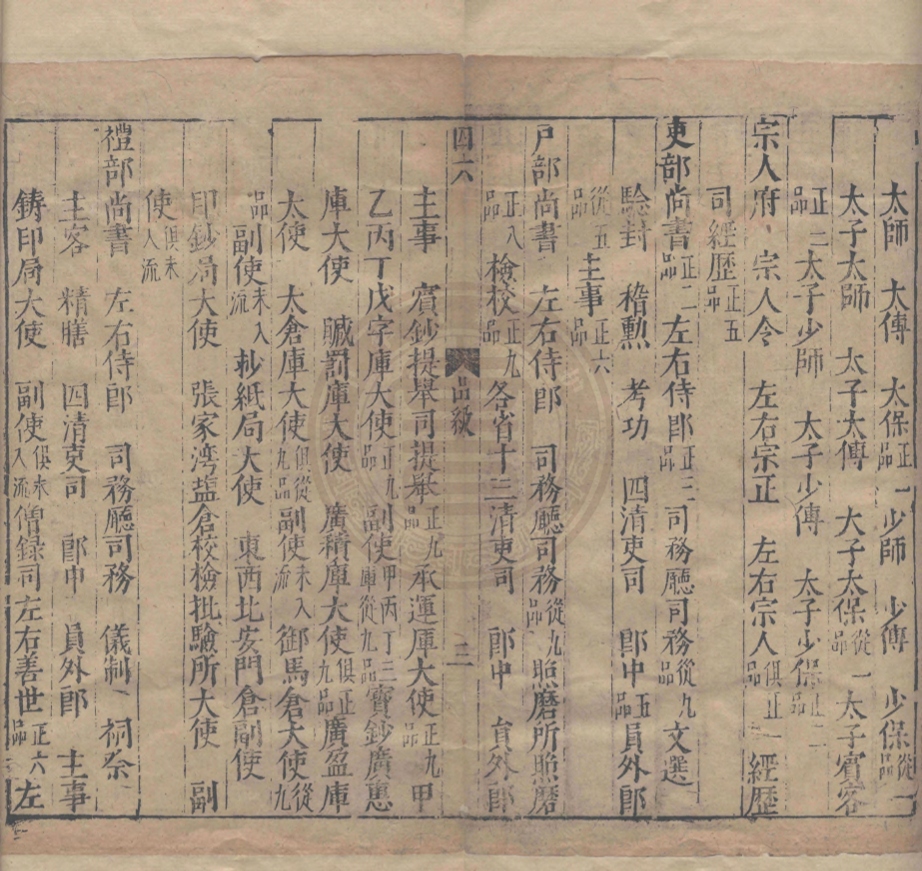 太師　太傅　太保正一品少師　少傅　少保從一品
太子太師　太子太傅　大子太保從一品太子賓客
正二品太子少師　太子少傅　太子少保正二品
宗人府　宗人令　左右宗正　左右宗人俱正一品經歷
司經歷正五品
吏部尚書正二品左右侍郎正三品司務廳司務從九品文選
驗封　稽勲　考功　四清吏司　郎中正五品員外郎
從五品主事正六品
戶部尚書　左右侍郎　司務廳司務從九品照磨所照磨
正八品檢校正九品各省十三清吏司　郎中　員外郎
四六　品級　三
主事　寳鈔提舉司提舉正九品承運庫大使正九品甲
乙丙丁戊字庫大使正九品副使甲丙丁三庫從九品寶鈔廣惠
庫大使　贓罰庫大使　廣積庫大使俱正九品廣盈庫
太使　太倉庫大使俱從九品副使未入流御馬倉大使從九
品副使未入流抄紙局大使　東西北安門倉副使
印鈔局大使　張家湾盐倉校檢批驗所大使　副
使俱未入流
禮部尚書　左右侍郎　司務廳司務　儀制　祠祭
主客　精膳　四清吏司　郎中　員外郎　主事
鑄印局大使　副使俱未入流僧録司左右善世正六品左